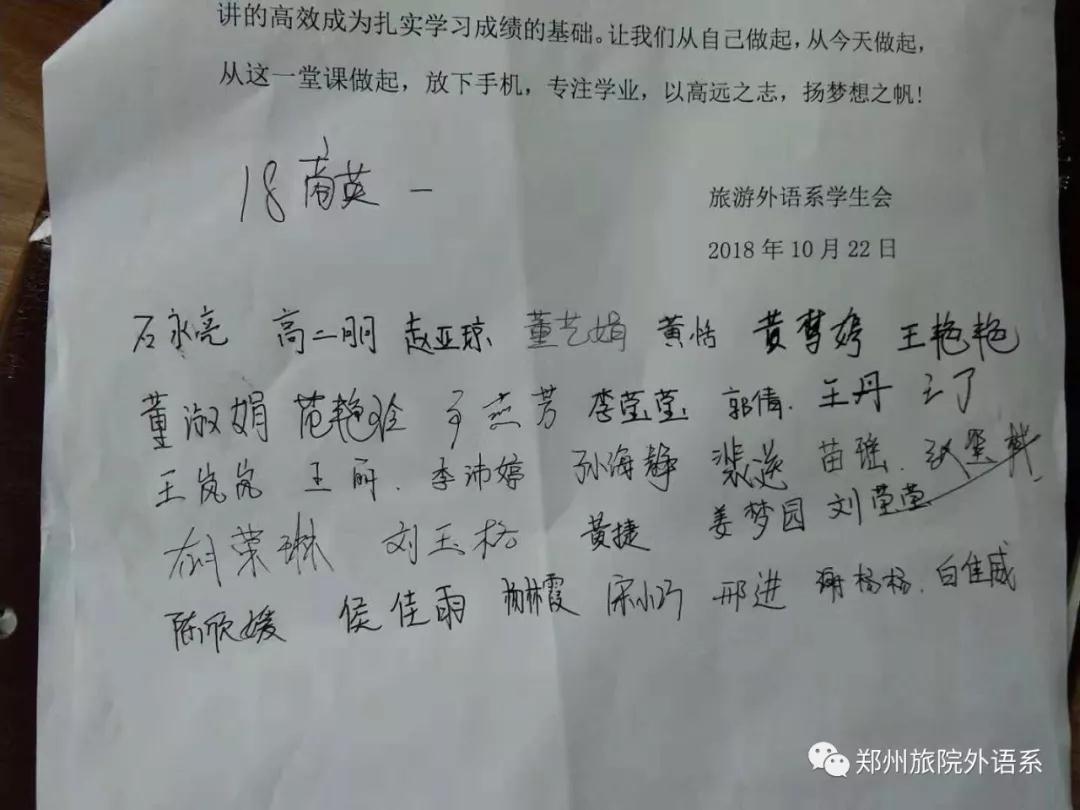 讲的高效成为扎实学习成绩的基础。让我们从自己做起，从今天做起，
从这一堂课做起，放下手机，专注学业，以高远之志，扬梦想之帆！
18商英一
旅游外语系学生会
2018年10月22日
石永亮 高二明 赵亚琼 董艺娟 黄恬 黄梦娉 王艳艳
董淑娟 范艳玲 于燕芳 李莹莹 郭倩. 王丹
王岚岚 王丽. 李沛婷 孙海静 苗瑶.
荣琳 刘玉格 黄捷 姜梦园 刘莹莹
陈欣媛 侯佳雨 杨林霞 宋小巧 邢进 谢杨杨. 白佳威
郑州旅院外语系